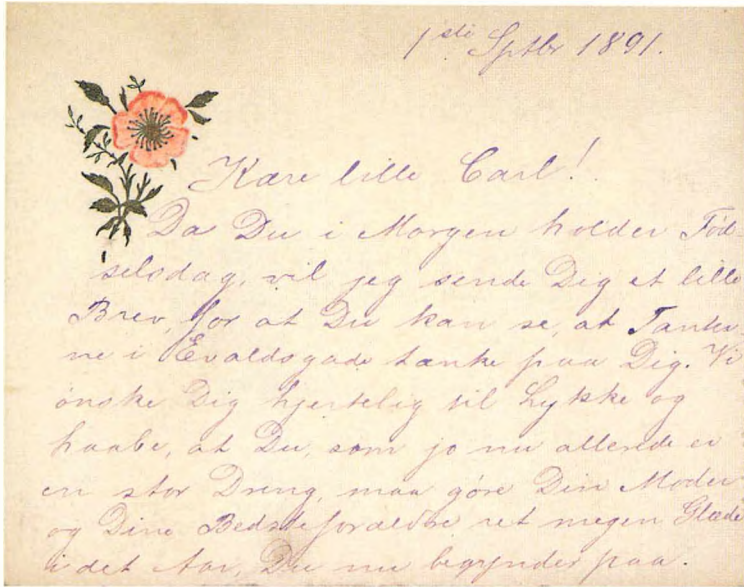 1ste Sptbr 1891.
Kære lille Carl!
Da Du i Morgen holder Fød-
selsdag, vil jeg sende Dig et lille
Brev, for at Du kan se, at Tanter-
ne i Evaldsgade tænke paa Dig. Vi
ønske Dig hjertelig til Lykke og
haabe, at Du, som jo nu allerede er
en stor Dreng, maa göre Din Moder
og Dine Bedsteforældre ret megen Glæde
i det Aar, Du nu begynder paa.